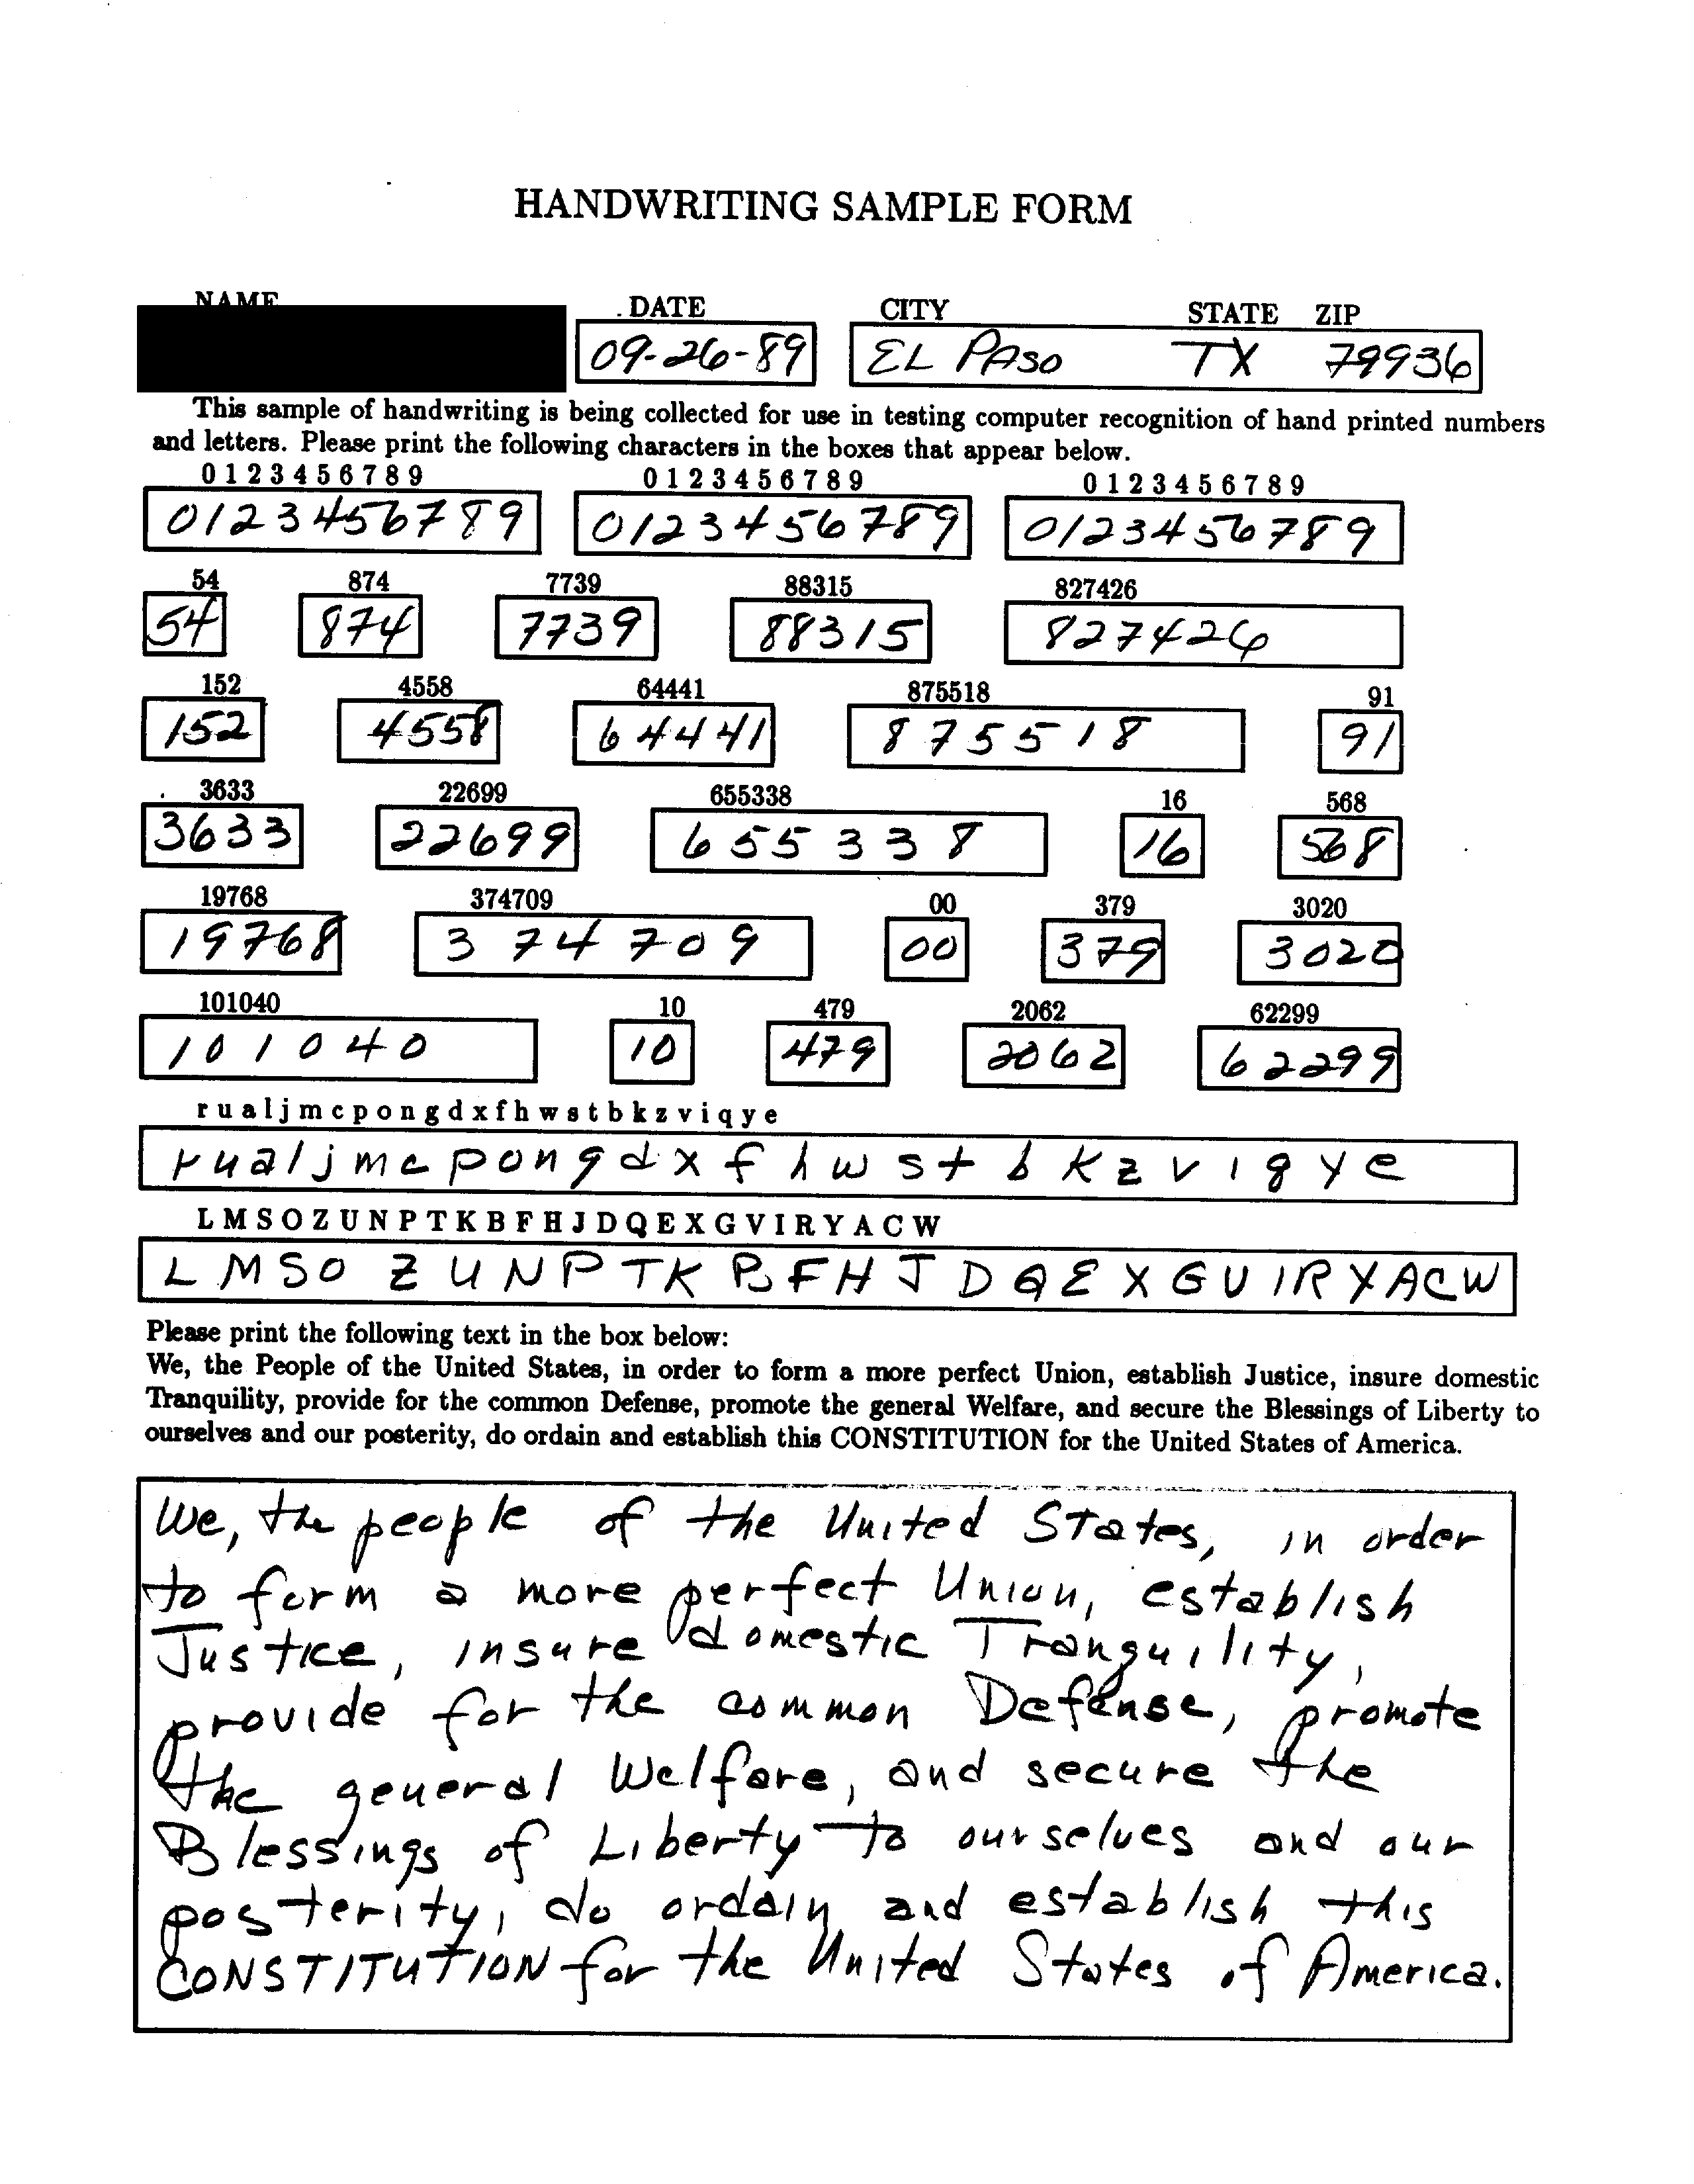 HANDWRITING SAMPLE FORM
NAME DATE CITY STATE ZIP
09-26-89 EL PASO TX 79936
This sample of handwriting is being collected for use in testing computer recognition of hand printed numbers
and letters. Please print the following characters in the boxes that appear below.
0 1 2 3 4 5 6 7 8 9 0 1 2 3 4 5 6 7 8 9 0 1 2 3 4 5 6 7 8 9
0123456789 0123456789 0123456789
54 874 7739 88315 827426
54 874 7739 88315 827426
152 4558 64441 875518 91
152 4558 64441 875518 91
3633 22699 655338 16 568
3633 22699 655338 16 568
19768 374709 00 379 3020
19768 374709 00 379 3020
101040 10 479 2062 62299
101040 10 479 2062 62299
r u a l j m c p o n g d x f h w s t b k z v i q y e
r u a l j m c p o n g d x f h w s t b k z v i q y e
L M S O Z U N P T K B F H J D Q E X G V I R Y A C W
L M S O Z U N P T K B F H J D Q E X G U I R Y A C W
Please print the following text in the box below:
We, the People of the United States, in order to form a more perfect Union, establish Justice, insure domestic
Tranquility, provide for the common Defense, promote the general Welfare, and secure the Blessings of Liberty to
ourselves and our posterity, do ordain and establish this CONSTITUTION for the United States of America.
We, the people of the United States, in order
to form a more perfect Union, establish
Justice, insure domestic Tranquility,
provide for the common Defense, promote
the general Welfare, and secure the
Blessings of Liberty to ourselves and our
posterity, do ordain and establish this
CONSTITUTION for the United States of America.